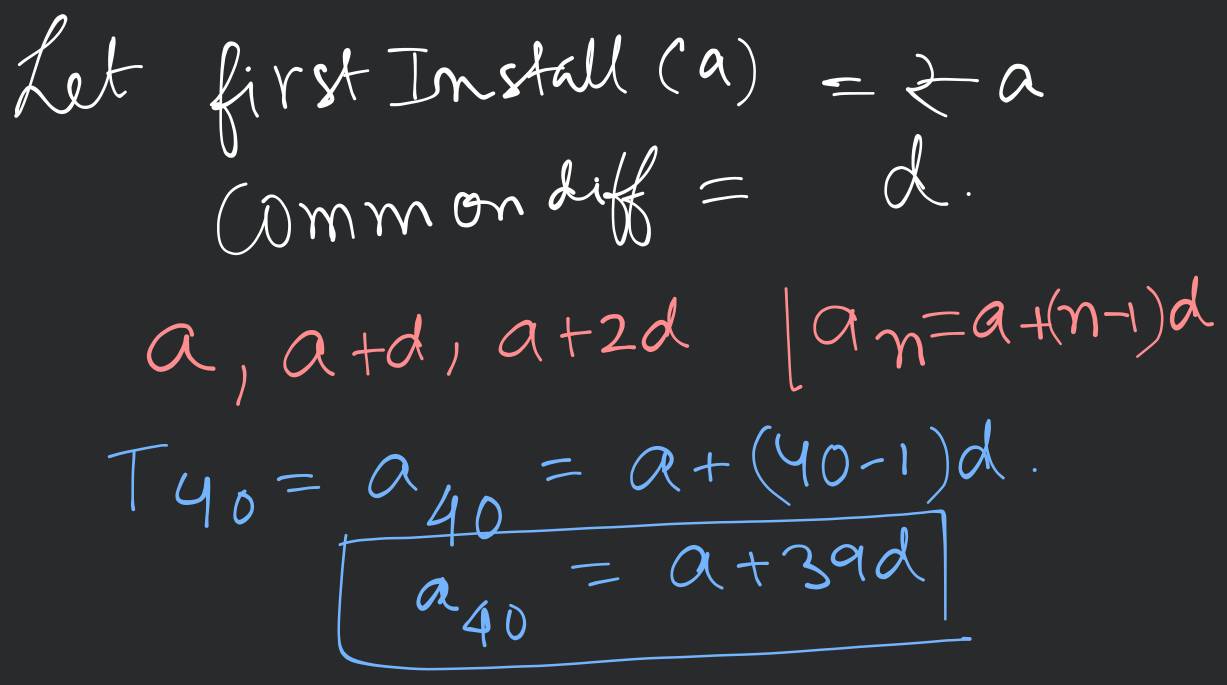 Let first Install (a) = ₹ a
Common diff = d.
a, a+d, a+2d | aₙ=a+(n-1)d
T₄₀ = a₄₀ = a+(40-1)d.
a₄₀ = a+39d